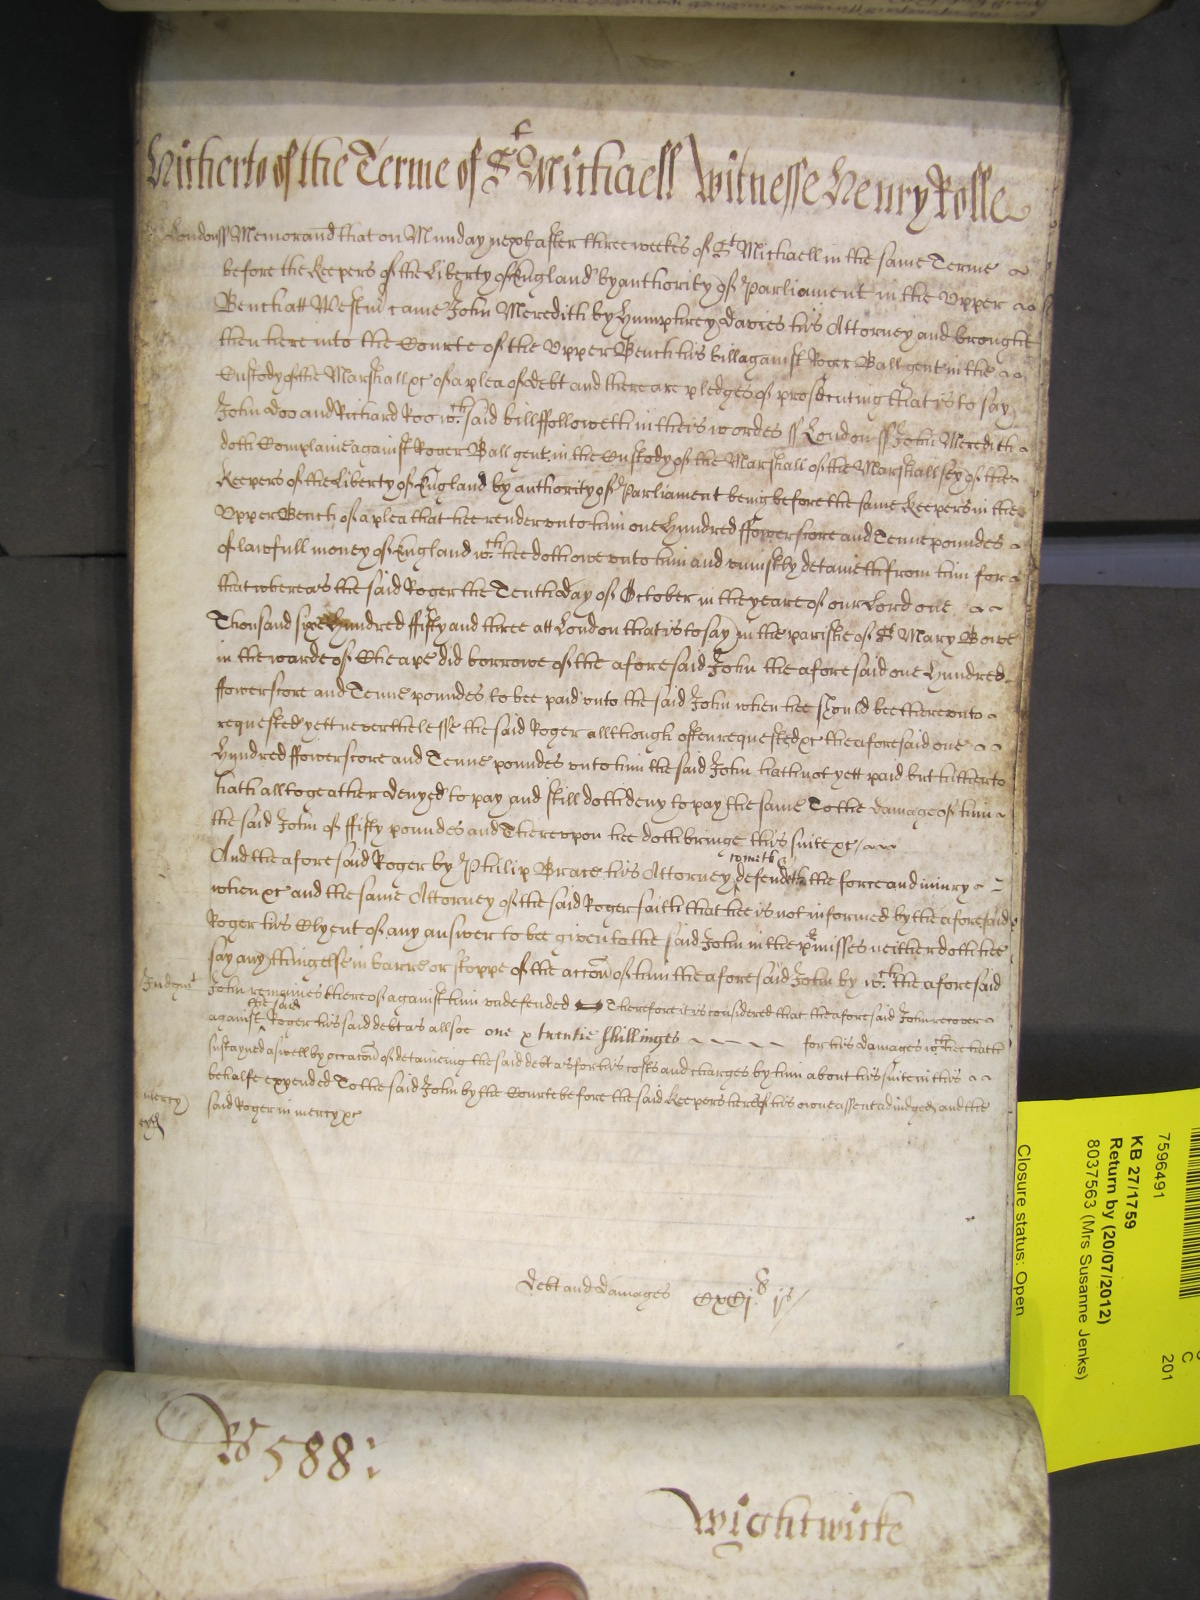 Hitherto of the Terme of St Michaell Witnesse Henry Rolle
London ss Memorand that on Munday next after three weekes of St Michaell in the same Terme
before the Keepers of the Liberty of England by authority of Parliament in the Upper
Bench att Westmr came John Meredith by Humphrey Davies his Attorney and brought
then here into the Courte of the Upper Bench his bill against Roger Ball gent in the
Custody of the Marshall &c of a plea of debt and there are pledges of prosecuting that is to say
John Doo and Richard Roo wch said bill ffolloweth in theis wordes ss London ss John Meredith
doth Complaine against Roger Ball gent in the Custody of the Marshall of the Marshallsey of the
Keepers of the Liberty of England by authority of Parliament being before the same Keepers in the
Upper Bench of a plea that hee render unto him one Hundred ffowerscore and Tenne poundes
of lawfull money of England wch hee doth owe unto him and uniustly detaineth from him for
that whereas the said Roger the Tenth Day of October in the yeare of our Lord one
Thousand sixe Hundred ffifty and three att London that is to say in the parishe of St Mary Bowe
in the warde of Cheape did borrowe of the aforesaid John the aforesaid one Hundred
ffowerscore and Tenne poundes to bee paid unto the said John when hee should bee thereunto
requested yett neverthelesse the said Roger allthough often requested &c the aforesaid one
Hundred ffowerscore and Tenne poundes unto him the said John hath not yett paid but hitherto
hath alltogeather denyed to pay and still doth deny to pay the same To the damage of him
the said John of ffifty poundes and Thereupon hee doth bringe this suite &c
And the aforesaid Roger by Philip Brace his Attorney cometh & defendeth the force and iniury
when &c and the same Attorney of the said Roger saith that hee is not informed by the aforesaid
Roger his Clyent of any answer to bee given to the said John in the pmisses neither doth hee
say any thing else in barre or stoppe of the accon of him the aforesaid John by wch the aforesaid
Judgmt John remaines thereof against him undefended Therefore it is considered that the aforesaid John recover
against the said Roger his said debt as allsoe one & twentie shillinges for his damages wch hee hath
sustayned aswell by occacon of detaineing the said debt as for his costs and charges by him about his suite in this
behalfe expended To the said John by the Courte before the said Keepers here of his owne assent adiudged and the
mercy said Roger in mercy &c
Debt and damages CxCj li js
Ro 588:
Wightwicke
7596491
KB 27/1759
Return by (20/07/2012)
8037563 (Mrs Susanne Jenks)
Closure status: Open
C
201